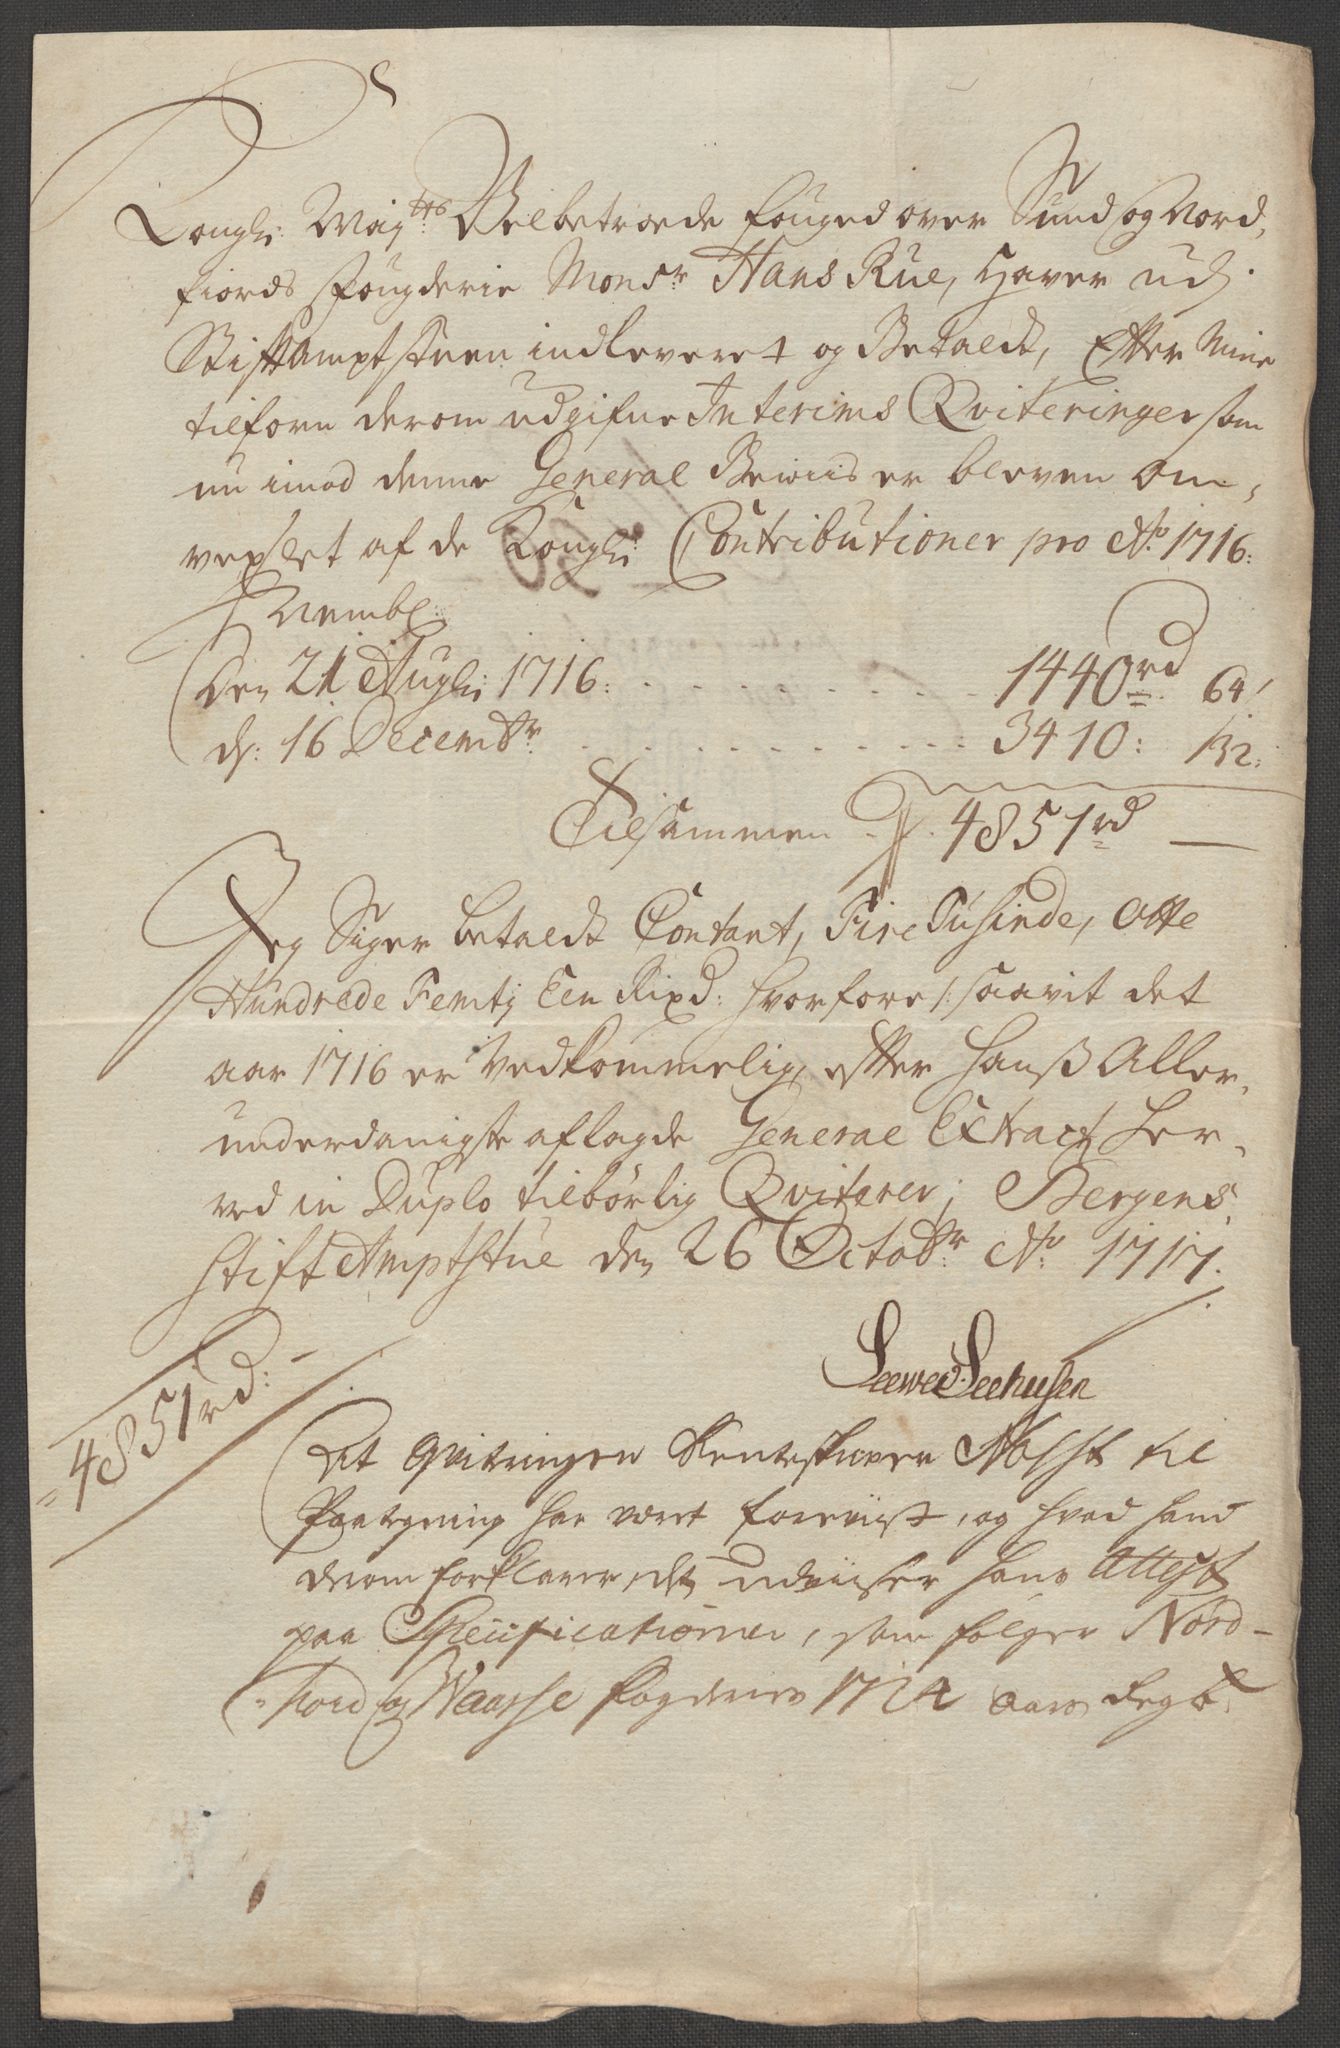 Kongl: May:tts Velbetroede fouged over Sund og Nord,
fiords fougderie Monsr: Hans Rue, Haver udj
Stiftamptstuen indleveret og Betaldt, Efter Mine
tilforn derom udgifne Interims Qviteringer som
nu imod denne General Beviis er bleven Om,
vexlet af de Kongl: Contributioner pro Ao: 1716:
Nembl:
Den 21 Augli: 1716: . . . . . . . . . . 1440rd 64
ds: 16 Decembr: . . . . . . . . . . . . . 3410: 32:
Tilsammen . 4851rd —
Jeg Siger betaldt Contant, Fire Tusinde, Otte
Hundrede Femtj Een Rixd: hvorfore /: saavit det
aar 1716 er Vedkommelig, efter hanß Aller,
underdanigste aflagde General Extract her,
ved in Duplo tilbørlig Qviterer; Bergens
Stift Amptstue den 26 Octobr: Ao: 1717.
Seewer Seehusen
4851rd: —
At Qvitringen Renteskriver Nofft til
Paategning har været foreviist, og hvad hand
derom forklarer, det udviiser hans Attest
paa Specificationen, som følger Nord-
hord og Waasse fogderies 1714 aars Regb: